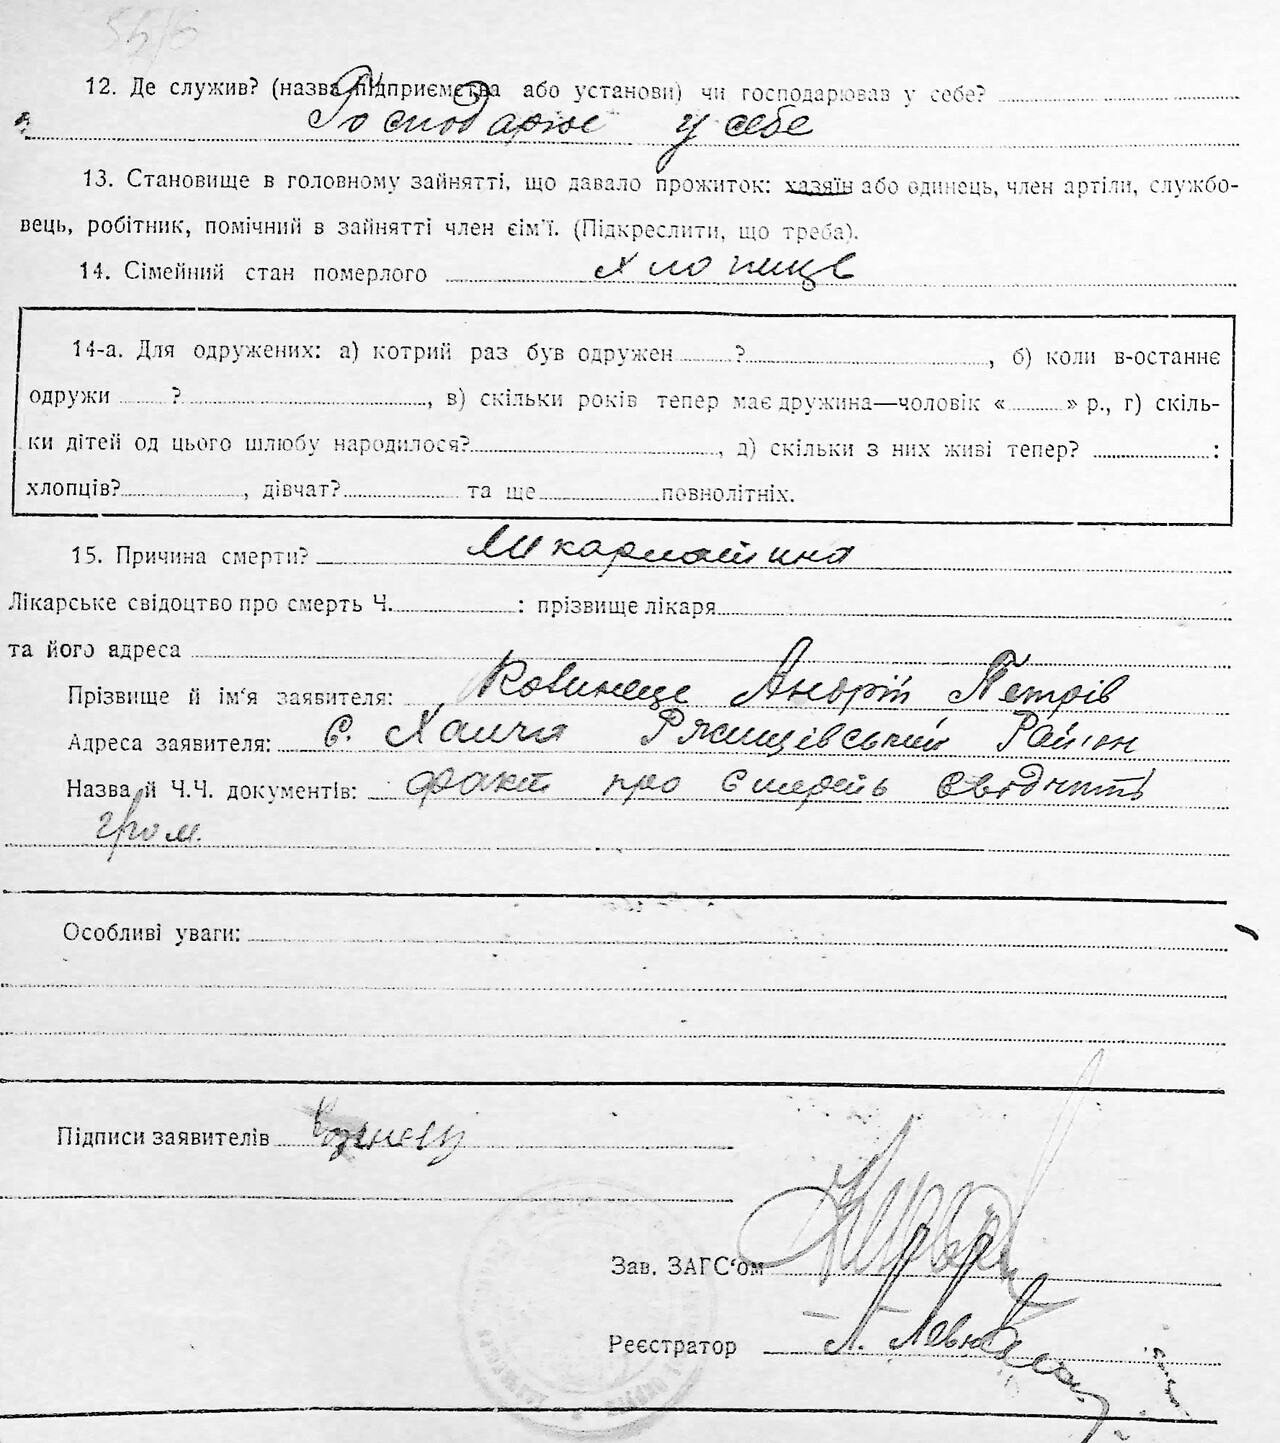 12. Де служив? (назва підприємства або установи) чи господарював у себе?
Господарює у себе
13. Становище в головному зайнятті, що давало прожиток: хазяїн або одинець, член артіли, службо-
вець, робітник, помічний в зайнятті член сім'ї. (Підкреслити, що треба).
14. Сімейний стан померлого хлопець
14-а. Для одружених: а) котрий раз був одружен ? , б) коли в-останнє
одружи ? , в) скільки років тепер має дружина—чоловік « » р., г) скіль-
ки дітей од цього шлюбу народилося? , д) скільки з них живі тепер? :
хлопців? , дівчат? та ще повнолітніх.
15. Причина смерти? Шкарлатина
Лікарське свідоцтво про смерть Ч. : прізвище лікаря
та його адреса
Прізвище й ім'я заявителя: Андрій Петрів
Адреса заявителя: с. Халча Ржищівський Район
Назва й Ч.Ч. документів: факт про смерть свідчить
гром.
Особливі уваги:
Підписи заявителів
Зав. ЗАГС'ом
Реєстратор Л.